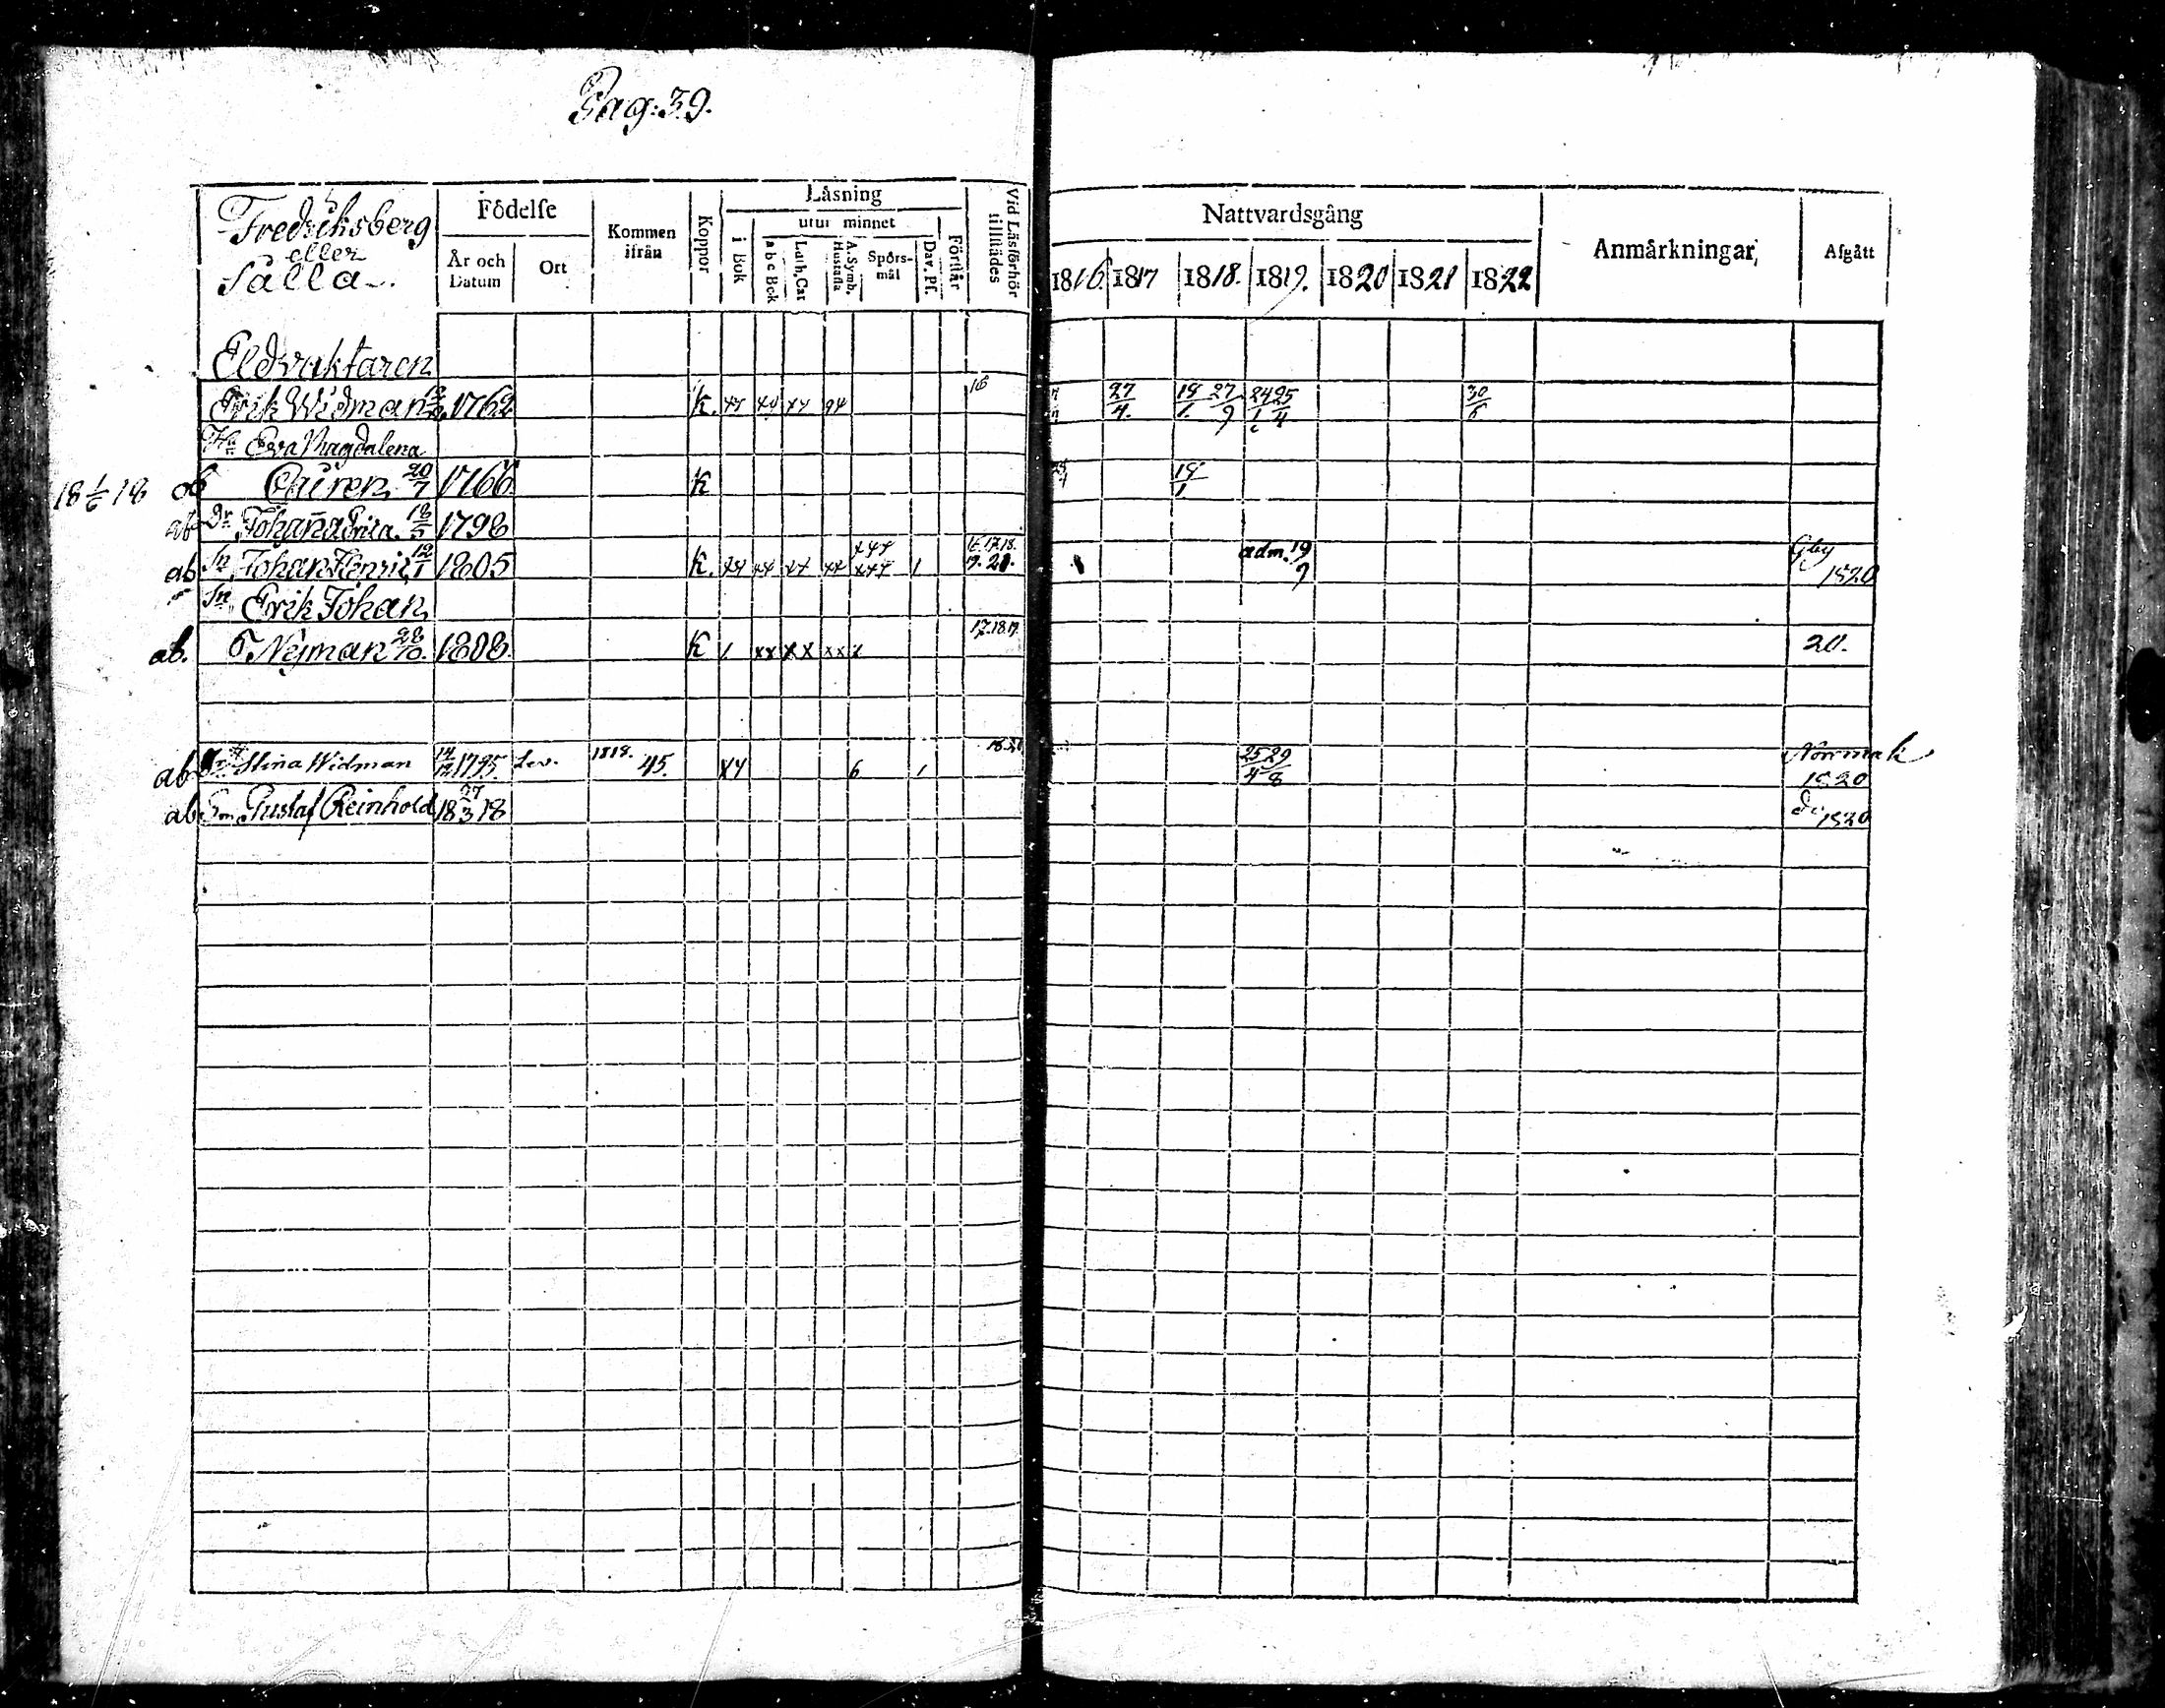 Pag: 39.
Fredriksberg
eller
Sälla.
Födelse
År och Datum
Ort
Kommen ifrån
Koppor
Läsning
i Bok
utur minnet
a b c Bok
Luth. Cat
A. Symb. Hustafla
Spörs-mål
Dav. Ps.
Förstår
Vid Läsförhör tillstädes
Nattvardsgång
1816. 1817 1818. 1819. 1820 1821 1822
Anmärkningar
Afgått
Eldvaktaren
Erik Widman 1762 k. 16 27/4. 18/1. 27/9 24/1 25/4 30/6
Hu Eva Magdalena
18 1/6 18 ob 20/7 1766 k 18/1
ab Dr Johanna 18/5 1798
ab Sn Johan Henric 12/1 1805 k. 1 16.17.18. 19.20. adm. 19/9 Gby 1820
Sn Erik Johan
ab. Nyman 28/10. 1808. k 1 xx xx xx 17.18.19. 20.
ab Stina Widman 14/12 1795. 1818. 45. 6 1 18.20 25/4 29/8 Norrmark 1820
ab Son Gustaf Reinhold 18 27/3 18 do 1820